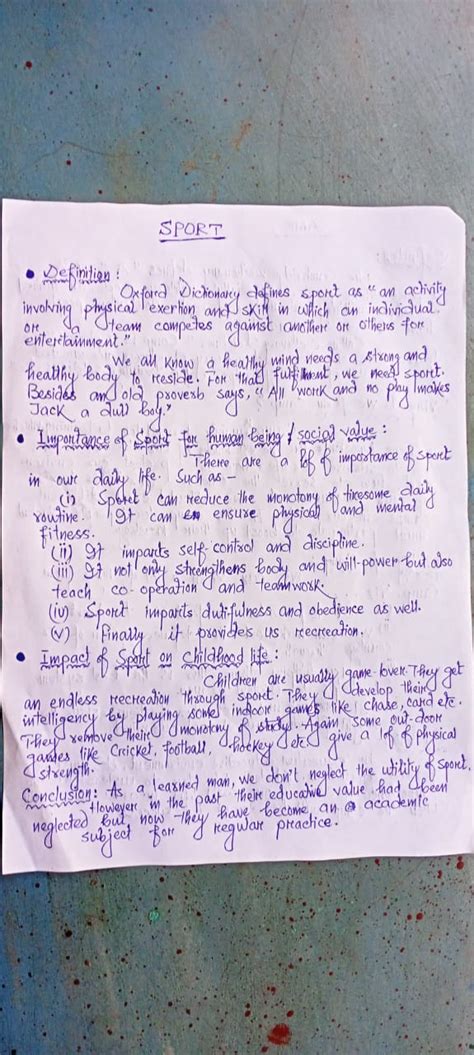 SPORT
• Definition :
Oxford Dictionary defines sport as "an activity
involving physical exertion and skill in which an individual
or a team competes against another or others for
entertainment."
We all know a healthy mind needs a strong and
healthy body to reside. For that fulfilment, we need sport.
Besides an old proverb says, "All work and no play makes
Jack a dull boy."
• Importance of Sport for human being / social value :
There are a lof of importance of sport
in our daily life. Such as –
(i) Sport can reduce the monotony of tiresome daily
routine. It can ensure physical and mental
fitness.
(ii) It imparts self-control and discipline.
(iii) It not only strengthens body and will-power but also
teach co-operation and teamwork.
(iv) Sport imparts dutifulness and obedience as well.
(v) Finally it provides us recreation.
• Impact of Sport on Childhood life :
Children are usually game-lover. They get
an endless recreation through sport. They develop their
intelligency by playing some indoor games like chase, card etc.
They remove their monotony of study. Again some out-door
games like Cricket, football, hockey etc give a lof of physical
strength.
Conclusion : As a learned man, we don't neglect the utility of sport.
However in the past their educative value had been
neglected but now they have become an academic
subject for regular practice.